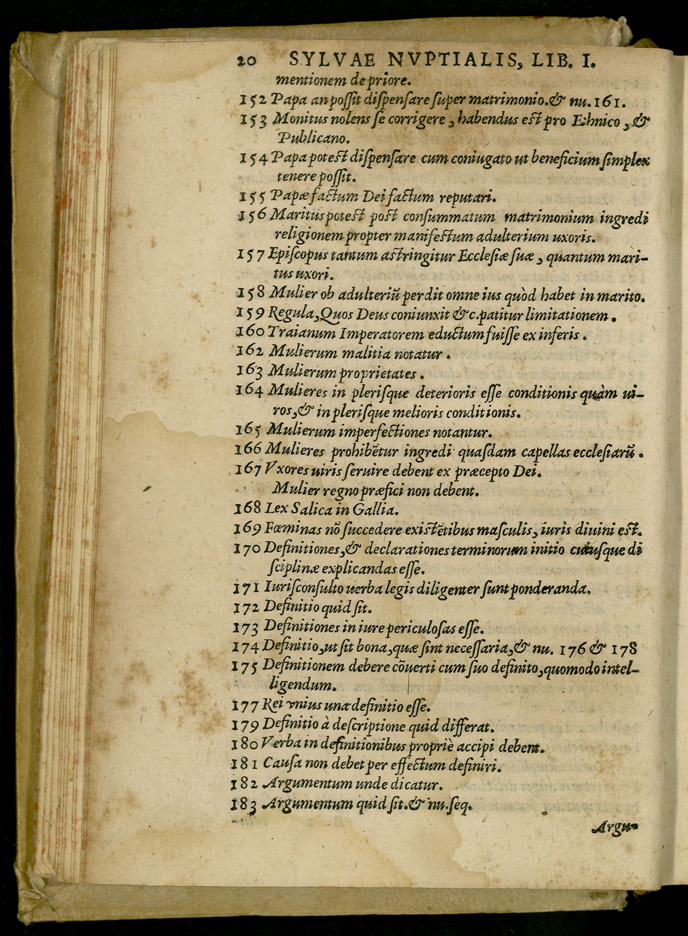 20 SYLVAE NVPTIALIS, LIB. I.
mentionem de priore.
152 Papa an possit dispensare super matrimonio.& nu. 161.
153 Monitus nolens se corrigere, habendus est pro Ethnico, &
Publicano.
154 Papa potest dispensare cum coniugato ut beneficium simplex
tenere possit.
155 Papæ factum Dei factum reputari.
156 Maritus potest post consummatum matrimonium ingredi
religionem propter manifestum adulterium uxoris.
157 Episcopus tantum astringitur Ecclesiæ suæ, quantum mari-
tus uxori.
158 Mulier ob adulteriũ perdit omne ius quòd habet in marito.
159 Regula, Quos Deus coniunxit &c. patitur limitationem.
160 Traianum Imperatorem eductum fuisse ex inferis.
162 Mulierum malitia notatur.
163 Mulierum proprietates.
164 Mulieres in plerisque deterioris esse conditionis quàm ui-
ros, & in plerisque melioris conditionis.
165 Mulierum imperfectiones notantur.
166 Mulieres prohibẽtur ingredi quasdam capellas ecclesiarũ.
167 Vxores uiris seruire debent ex præcepto Dei.
Mulier regno præfici non debent.
168 Lex Salica in Gallia.
169 Fœminas nõ succedere existẽtibus masculis, iuris diuini est.
170 Definitiones, & declarationes terminorum initio cuiusque di
sciplinæ explicandas esse.
171 Iurisconsulto uerba legis diligenter sunt ponderanda.
172 Definitio quid sit.
173 Definitiones in iure periculosas esse.
174 Definitio, ut sit bona, quæ sint necessaria, & nu. 176 & 178
175 Definitionem debere cõuerti cum suo definito, quomodo intel-
ligendum.
177 Rei vnius unã definitio esse.
179 Definitio à descriptione quid differat.
180 Verba in definitionibus propriè accipi debent.
181 Causa non debet per effectum definiri.
182 Argumentum unde dicatur.
183 Argumentum quid sit. & nu. seq.
Argu-